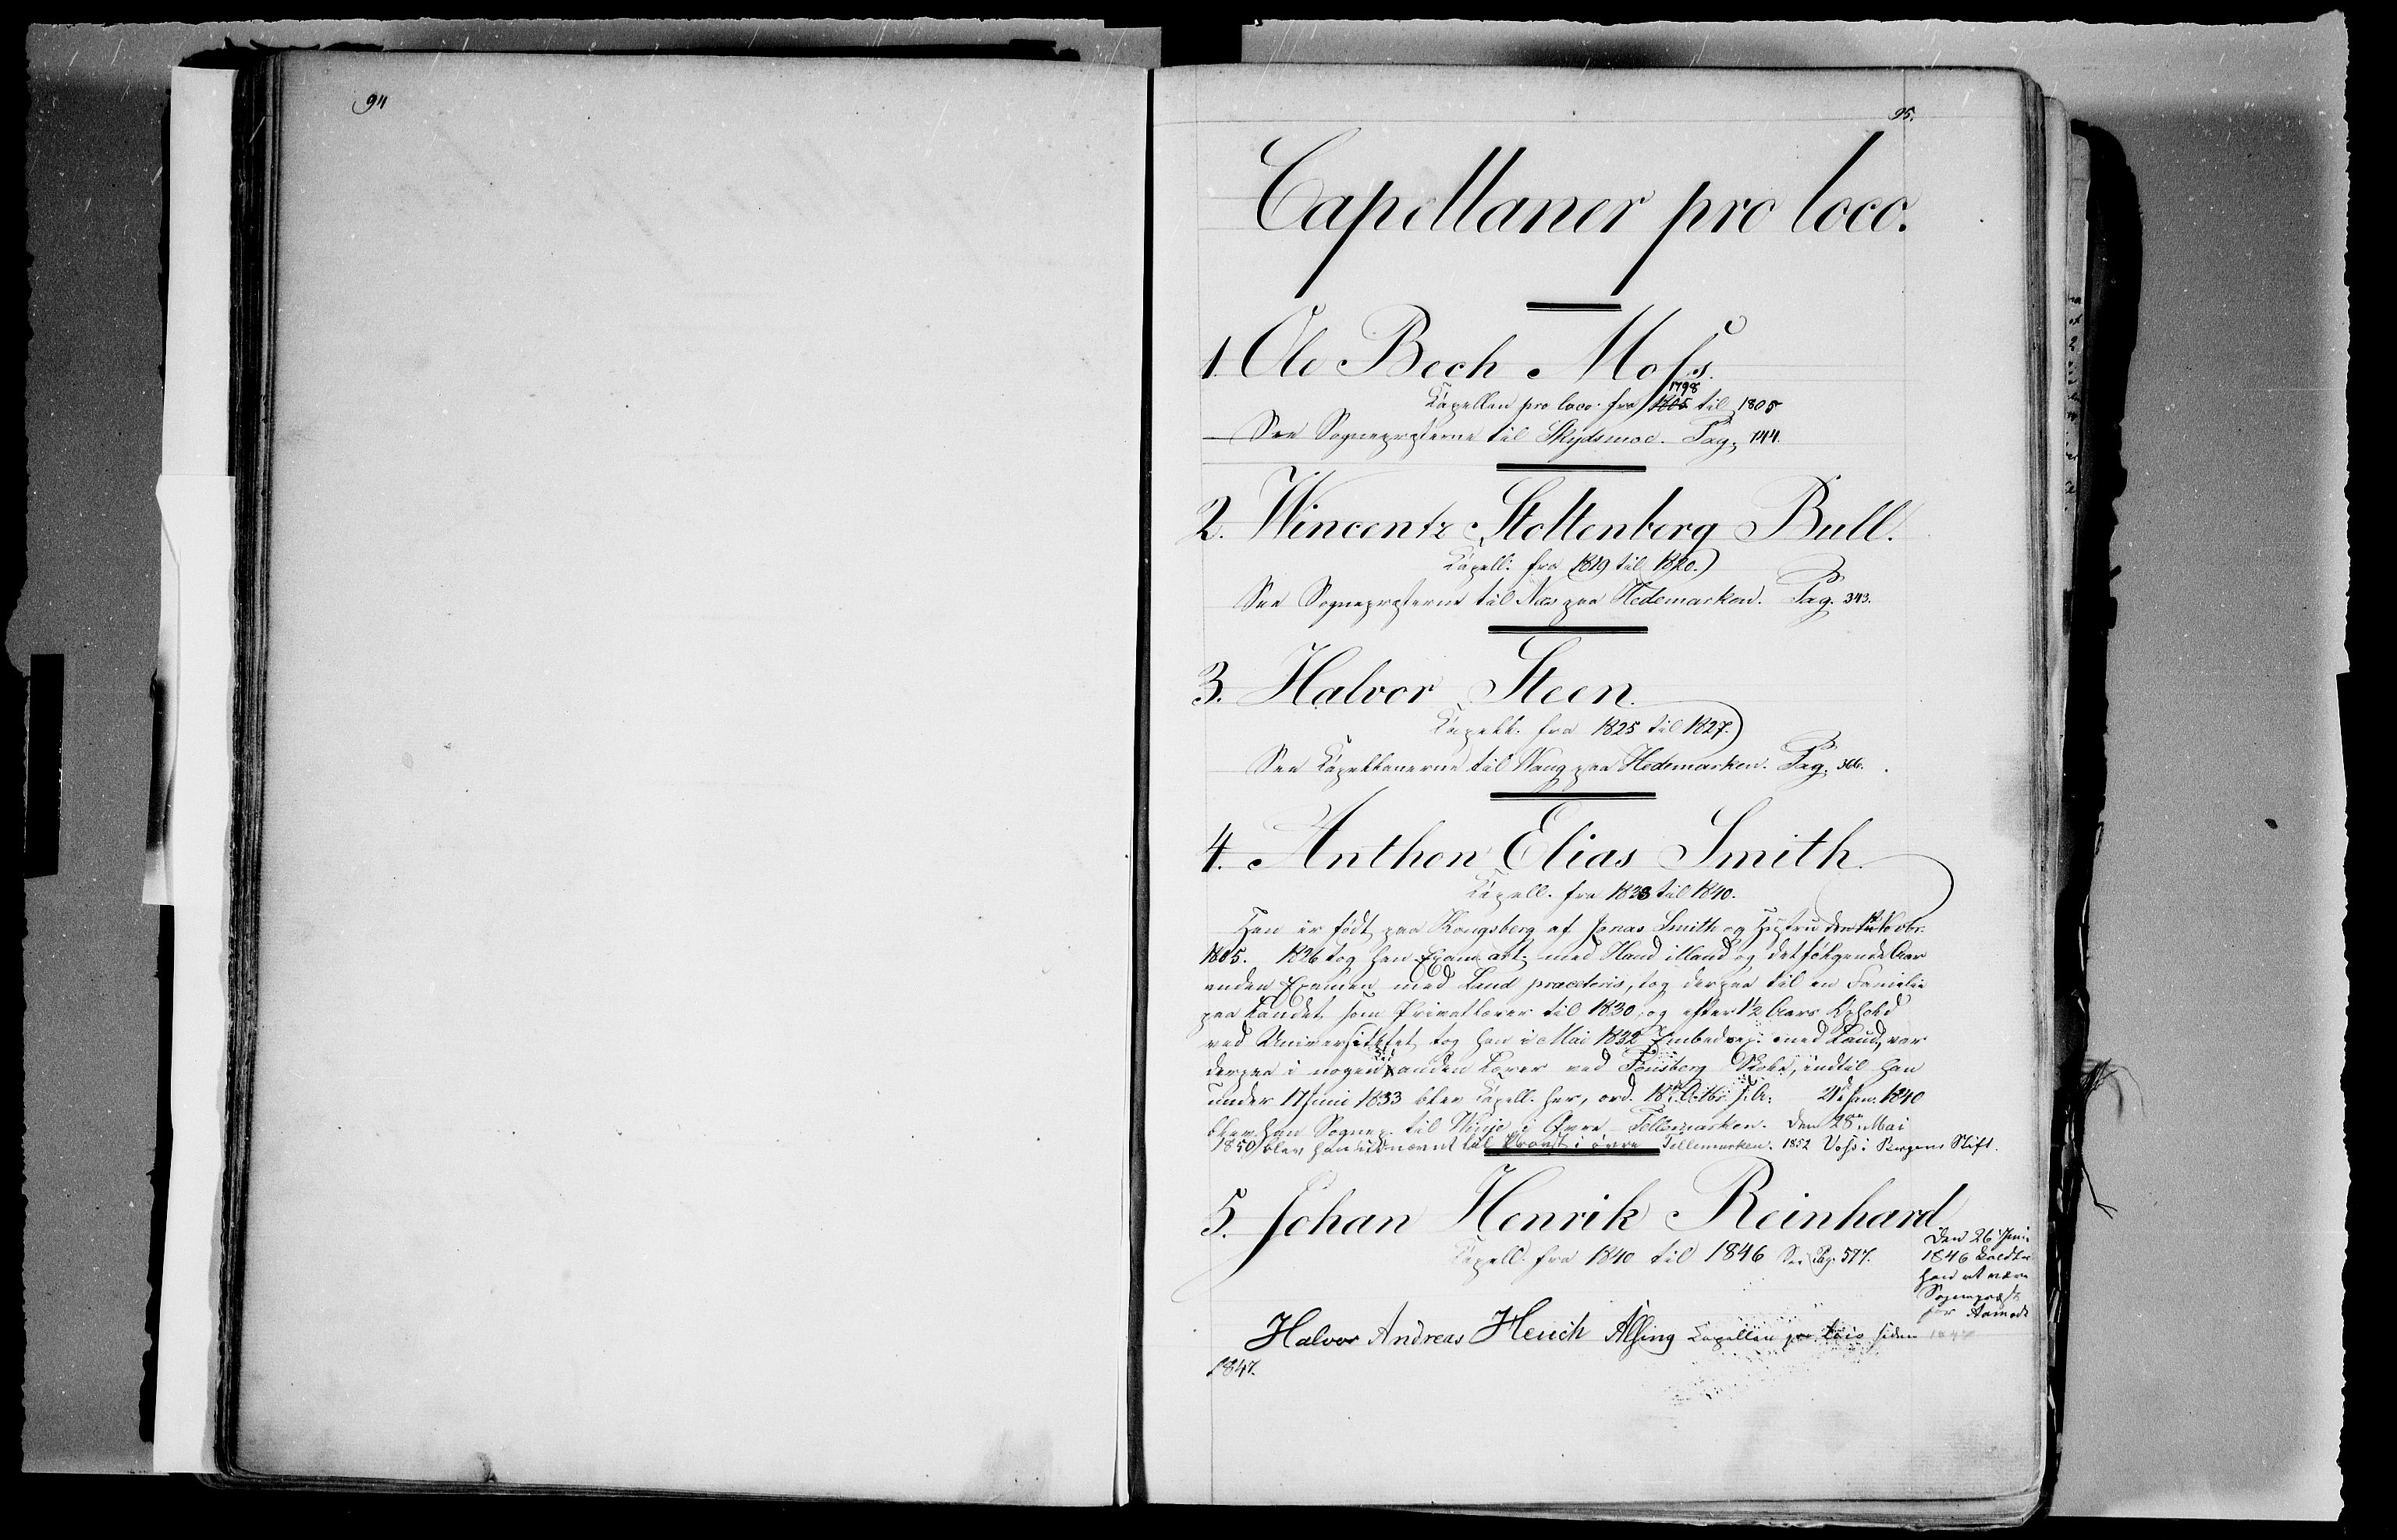 94
95.
Capellaner pro loco.
1. Ole Bech Moss.
1798
Capellan pro loco. fra 1805 til 1805
See Sognepræsterne til Skydsmoe. Pag. 144.
2. Wincentz Stoltenberg Bull.
Capell. fra 1819 til 1820.
See Sognepræsterne til Næs paa Hedemarken. Pag. 343.
3. Halvor Steen.
Capell. fra 1825 til 1827.
See Capellanerne til Vang paa Hedemarken. Pag. 366.
4. Anthon Elias Smith.
Capell. fra 1833 til 1840.
Han er født paa Kongsberg af Jonas Smith og Hustru den
1805. 1826 tog han Exam. art. med Haud illaud og det følgende Aar
anden Examen med Laud præceteris, tog derpaa til en Familie
paa Landet som Privatlærer til 1830, og efter 1½ Aars Ophold
ved Universitetet tog han i Mai 1832 Embedsex. med Laud, var
derpaa i nogen Tid anden Lærer ved Tønsberg Skole, indtil han
under 17 Juni 1833 blev Capell. her, ord. 18de Octbr. s. A. 21de Jan. 1840
blev han Sognep. til Vinje i Øvre Tellemarken. Den 28de Mai
1850 blev han udnævnt til Provst i øvre Tellemarken. 1852 Voss i Bergens Stift.
5. Johan Henrik Reinhard
Capell. fra 1840 til 1846 See Pag. 577.
Den 26 Juni
1846 kaldtes
han at være
Sognepræst
for Aamodt
Halvor Andreas Heuch Alsing Capellan pro loco siden 1847
1847.